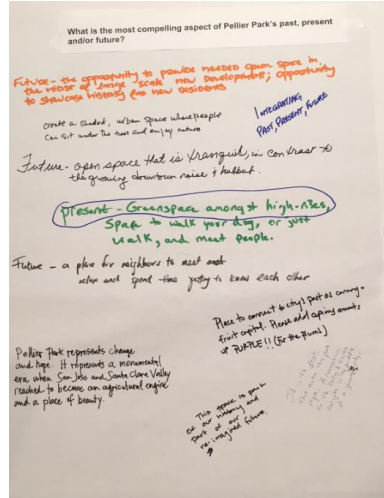 What is the most compelling aspect of Pellier Park's past, present
and/or future?
Future - the opportunity to provide needed open space in
the midst of large scale new development; opportunity
to showcase history for new residents
create a shaded, urban space where people
can sit under the trees and enjoy nature
INTEGRATING
PAST, PRESENT, FUTURE
Future - open space that is tranquil, in contrast to
the growing downtown noise & hubbub.
present - Greenspace amongst high-rises,
Space to walk your dog, or just
walk, and meet people.
Future - a place for neighbors to meet and
relax and spend time getting to know each other
Place to connect to city's past as canning
fruit capital. Please add
of PURPLE!! (For the Plums)
Pellier Park represents change
and hope. It represents a monumental
era when San Jose and Santa Clara Valley
reached to become an agricultural engine
and a place of beauty.
This space is part
of our history and
part of our
re-imagined future.